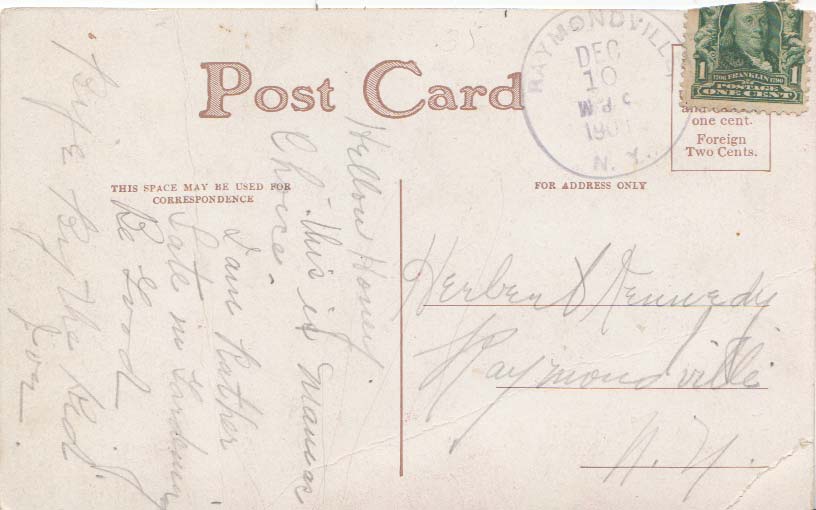 Post Card
RAYMONDVILLE
DEC
10
190
N. Y.
1 1
FRANKLIN
POSTAGE
ONE CENT
one cent.
Foreign
Two Cents.
THIS SPACE MAY BE USED FOR
CORRESPONDENCE
FOR ADDRESS ONLY
Hellow Honey
this is Mamas
Choice.
I am Rather
Late in
Be Good
Bye By The Kid
Joe.
Herbert Kennedy
Raymondville
N. Y.